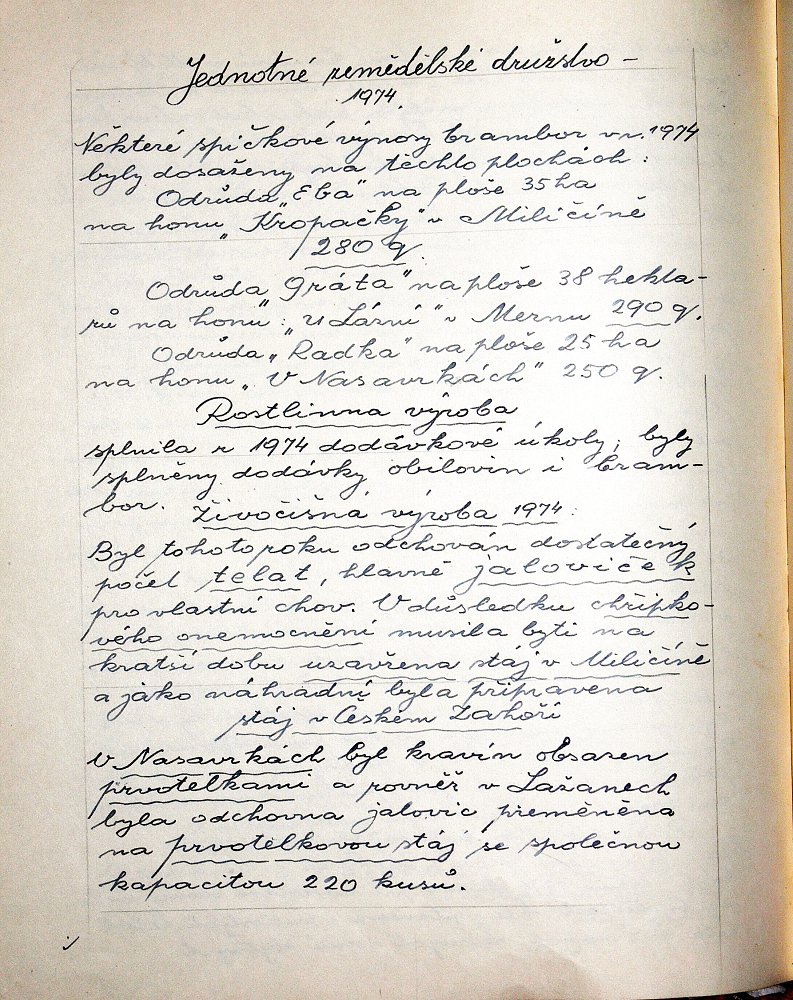 Jednotné zemědělské družstvo –
1974.
Některé spičkové výnosy brambor v r. 1974
byly dosaženy na těchto plochách :
Odrůda „Eba" na ploše 35 ha
na honu „Kropačky" v Miličíně
280 q.
Odrůda „Gráta" na ploše 38 hekta-
rů na honu : „U Lázní" v Mernu 290 q.
Odrůda „Radka" na ploše 25 ha
na honu „V Nasavrkách" 250 q.
Rostlinna výroba
splnila r 1974 dodávkové úkoly; byly
splněny dodávky obilovin i bram-
bor. Živočišná výroba 1974 :
Byl tohoto roku odchován dostatečný
počet telat, hlavně jaloviček
pro vlastní chov. V důsledku chřipko-
vého onemocnění musila byti na
kratší dobu uzavřena stáj v Miličíně
a jako náhradní byla připravena
stáj v Českém Záhoří
V Nasavrkách byl kravín obsazen
prvotelkami a rovněž v Lažanech
byla odchovna jalovic přeměněna
na prvotelkovou stáj se společnou
kapacitou 220 kusů.